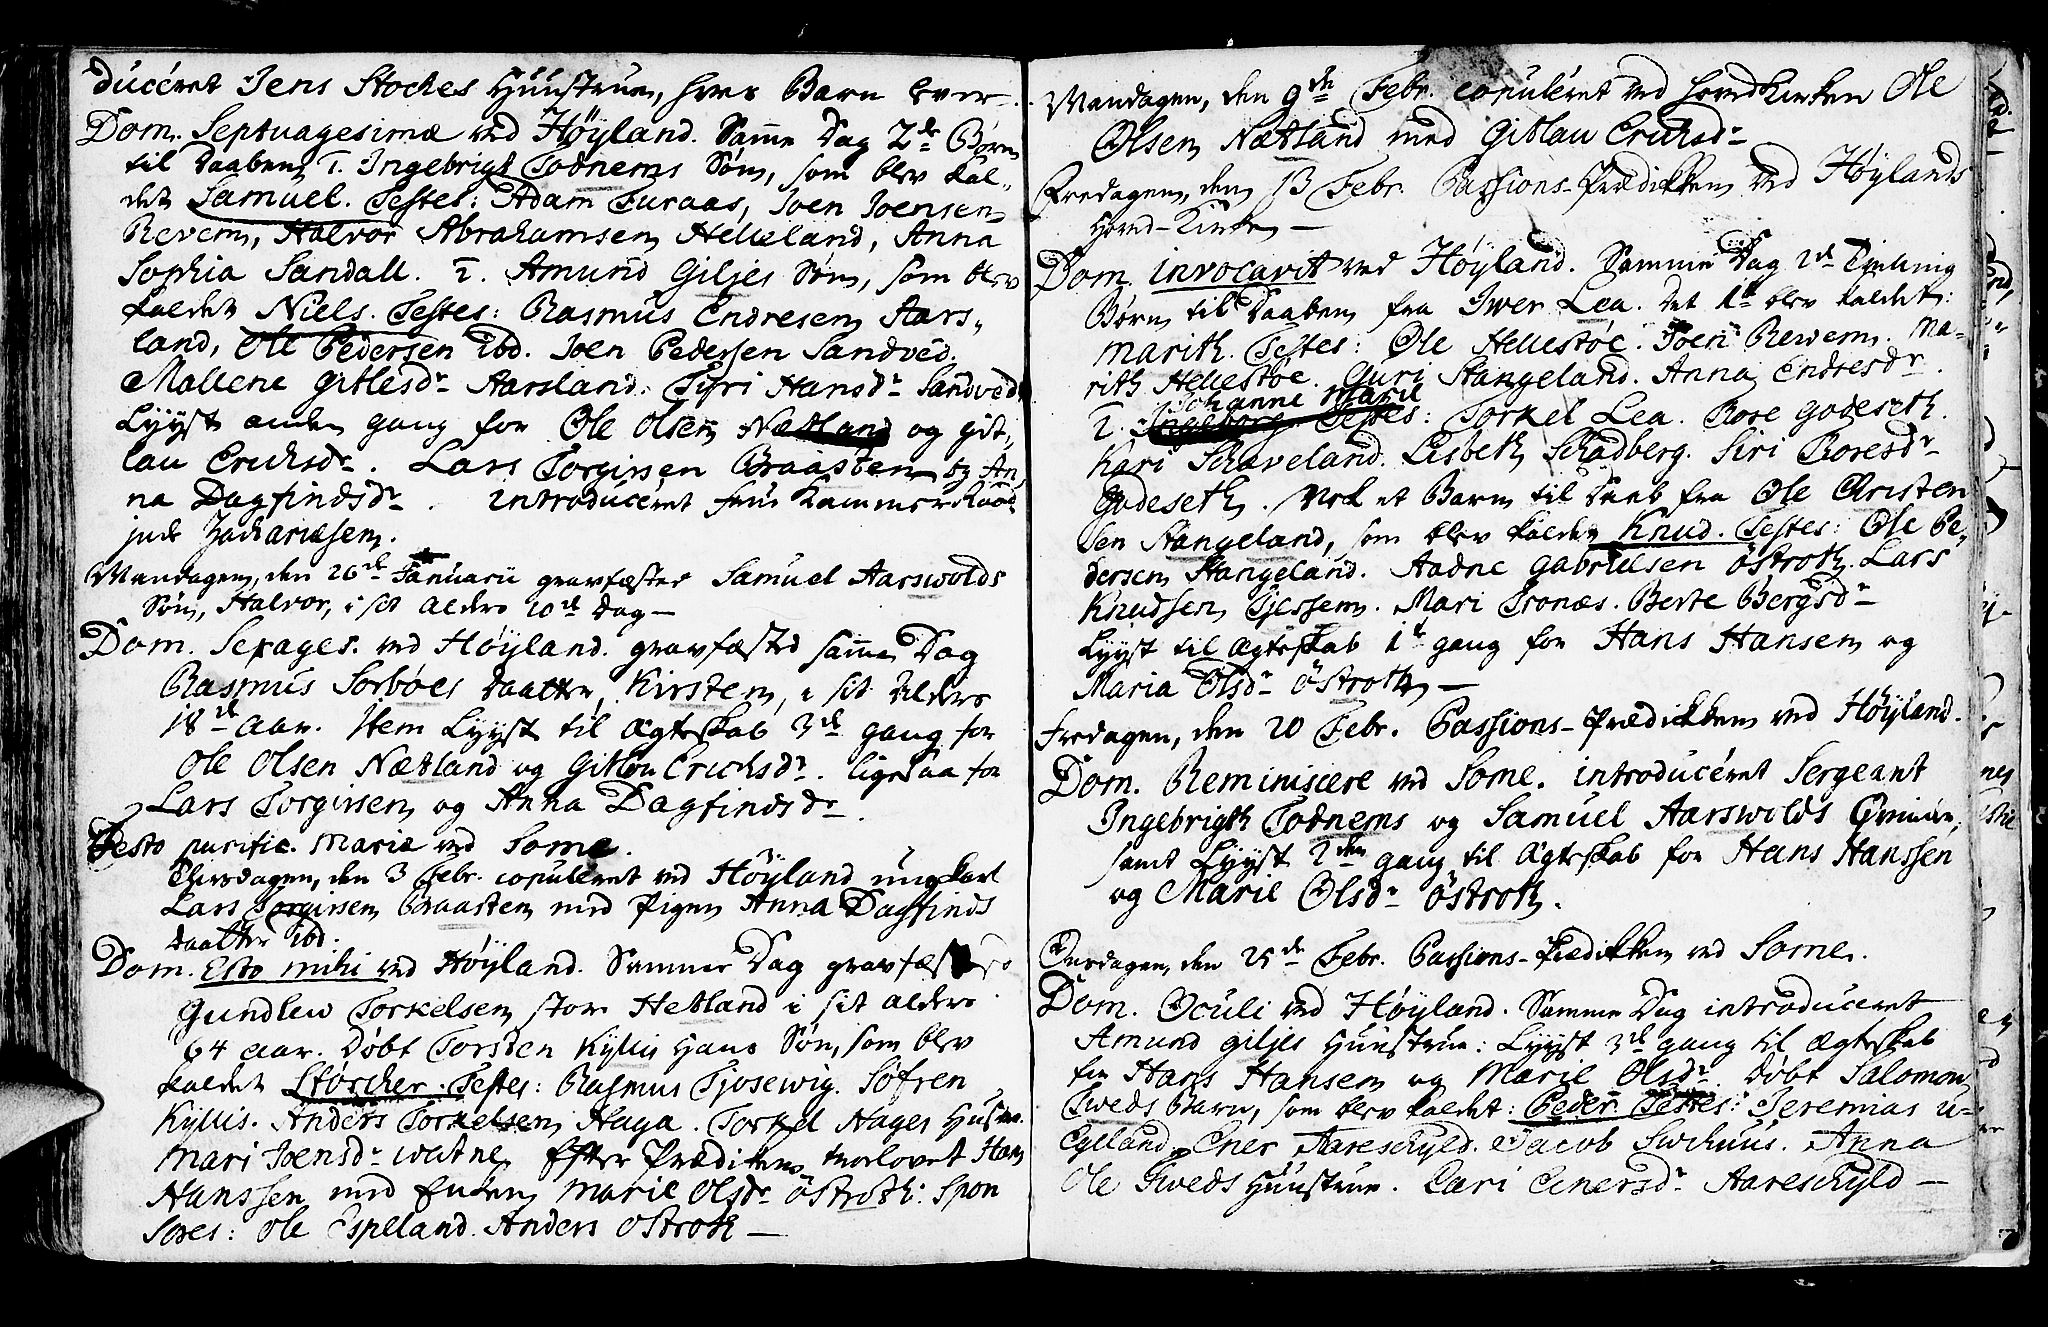 duceret Jens Stockes Huustrue, hvis Barn over-
Dom. Septuagesimæ ved Höyland. Samme Dag 2de Børn
til Daaben, 1. Ingebrigt Todnems Søn, som blev kal-
det Samuel. Testes: Adam Furaas, Joen Joensen
Revem, Halvor Abrahamsen Helleland, Anna
Sophia Sandall. 2. Amund Giljes Søn, som blev
kaldet Niels. Testes: Rasmus Endresen Aars-
land, Ole Pedersen ibd. Joen Pedersen Sandved.
Mallene Gitlesdr Aarsland. Syri Hansdr Sandved
Lyyst anden gang for Ole Olsen Nætland og Git-
lau Erichsdr. Lars Torgirsen Braasten og An-
na Dagfindsdr. introduceret frue Kammer Raad
inde Zachariæsen.
Mandagen, den 26de Januarii gravfæstes Samuel Aarswolds
Søn, Halvor, i sit Alders 10de Dag —
Dom. Sexages. ved Höyland. gravfæsted samme Dag
Rasmus Sorböes Daatter, Kirsten, i sit Alders
18de Aar. Item Lyyst til Ægteskab 3de gang for
Ole Olsen Nætland og Gitlau Erichsdr. ligesaa for
Lars Torgirsen og Anna Dagfindsdr.
Festo purific. Mariæ ved Some.
Tirsdagen, den 3 Febr. copuleret ved Höyland ungkarl
Lars Torgirsen Braasten med Pigen Anna Dagfinds
daatter ibd.
Dom. Esto mihi ved Höyland. Samme Dag gravfæstes
Gundleu Torkelsen store Hetland i sit alders
64 aar. Døbt Torsten Kyllis Hans Søn, som blev
kaldet Störcher. Testes: Rasmus Tjosewig. Söfren
Kyllis. Anders Torkelsen Haga. Torkel Hages Hustrue.
Mari Joensdr watne. Efter Prædiken trolovet Hans
Hanssen med Enken Marie Olsdr östroth: Spon
sores: Ole Espeland. Anders Ostroth —
Mandagen, den 9de Febr. copuleret ved Hovedkirken Ole
Olsen Nætland med Gitlau Erichsdr
Fredagen, den 13 Febr. Passions-Prædikken ved Höylands
Hoved-Kirke —
Dom. invocavit ved Höyland. Samme Dag 2de Tvilling
Børn til Daaben fra Iwer Lea. Det 1te blev kaldet:
Marith. Testes: Ole Hellestöe. Joen Rewem. Ma-
rith Hellestöe. Guri Stangeland. Anna Endresdr.
Johanne Marie
2. Testes: Torkel Lea. Rose Godeseth.
Kari Schaveland. Lisbeth Schadberg. Siri Roresdr
Godeseth. Nok et Barn til Daab fra Ole Christen
sen Stangeland, som blev kaldet Knud. Testes: Ole Pe-
dersen Stangeland. Aadne Gabrielsen östroth. Lars
Knudsen Tjessem. Mari Tronæs. Berte Bergsdr
Lyyst til Ægteskab 1te gang for Hans Hansen og
Maria Olsdr östroth —
Fredagen, den 20 Febr. Passions-Prædikken ved Höyland.
Dom. Reminiscere ved Some. introduceret Sergeant
Ingebrigth Todnems og Samuel Aarswolds Qvinder,
samt Lyyst 2den gang til Ægteskab for Hans Hanssen
og Marie Olsdr östroth.
Onsdagen, den 25de Febr. Passions-Prædikken ved Some.
Dom. Oculi ved Höyland. Samme Dag introduceret
Amund Giljes Huustrue: Lyyst 3de gang til Ægteskab
for Hans Hansen og Marie Olsdr. Døbt Salomon
Tweds Barn, som blev kaldet: Peder. Testes: Jeremias U-
Egeland. Ener Aareschyld. Jacob Swihuus. Anna
Ole Tweds Huustrue. Kari Enersdr Aareschyld —